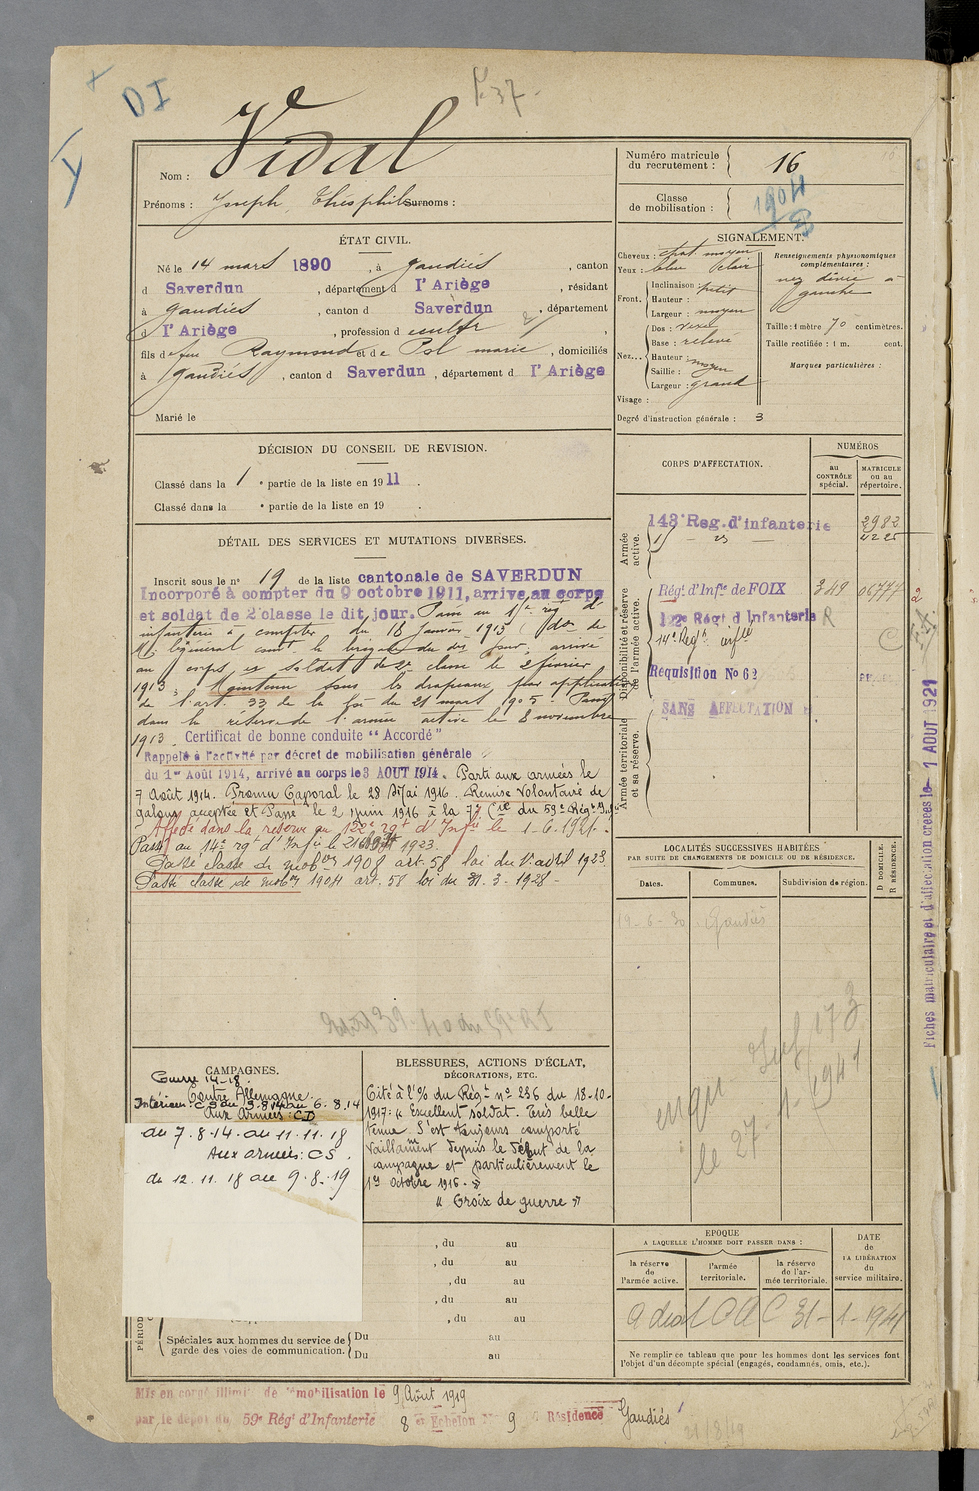 DI
P. 37
Nom : Vidal
Prénoms : Joseph, Théophile Surnoms :
Numéro matricule du recrutement : 16
Classe de mobilisation : 1904
ÉTAT CIVIL.
Né le 14 mars 1890, à Gaudiès, canton
d Saverdun, département d l'Ariège, résidant
à Gaudiès, canton d Saverdun, département
d l'Ariège, profession d cultr
fils d feu Raymond et de Pol marie, domiciliés
à Gaudiès, canton d Saverdun, département d l'Ariège
Marié le
SIGNALEMENT.
Cheveux : chat. moyen
Yeux : bleu clair
Front. Inclinaison : petit
Hauteur :
Largeur : moyen
Nez... Dos : vexe
Base : relevé
Hauteur : moyen
Saillie :
Largeur : grand
Visage :
Degré d'instruction générale : 3
Renseignements physionomiques complémentaires :
nez dévié à gauche
Taille : 1 mètre 70 centimètres.
Taille rectifiée : 1 m. cent.
Marques particulières :
DÉCISION DU CONSEIL DE REVISION.
Classé dans la 1e partie de la liste en 1911.
Classé dans la e partie de la liste en 19 .
DÉTAIL DES SERVICES ET MUTATIONS DIVERSES.
Inscrit sous le n° 19 de la liste cantonale de SAVERDUN
Incorporé à compter du 9 octobre 1911, arrivé au corps
et soldat de 2e classe le dit jour. Passé au rég. d'
infanterie à compter du 16 janvier 1913 (don de
M. le Général comt la brigade du dit jour, arrivé
au corps et soldat de 2e classe le 2 février
1913. Maintenu sous les drapeaux par application
de l'art. 33 de la loi du 21 mars 1905. Passé
dans la réserve de l'armée active le 8 novembre
1913. Certificat de bonne conduite "Accordé"
Rappelé à l'activité par décret de mobilisation générale
du 1er Août 1914, arrivé au corps le 3 AOUT 1914. Parti aux armées le
7 Août 1914. Promu Caporal le 28 Mai 1916. Remise Volontaire de
galons acceptée et Passé le 2 juin 1916 à la 7e Cie du 59e Régt d'Infie
Affecté dans la réserve au 122e rgt d'Infie le 1.6.1921.
Passé au 14e rgt d'Infie le 1923.
Passé classe de mobon 1908 art. 58 loi du 1er avril 1923.
Passé classe de mobon 1904 art. 58 loi du 31.3.1928.
CORPS D'AFFECTATION.
NUMÉROS
au CONTRÔLE spécial.
MATRICULE ou au répertoire.
Armée active.
143e Reg. d'infanterie 2982
4225
Disponibilité et réserve de l'armée active.
Régt d'Infie de FOIX 349 06777
122e Régt d'Infanterie R
14e Regt infie
Réquisition No 62
SANS AFFECTATION
Armée territoriale et sa réserve.
LOCALITÉS SUCCESSIVES HABITÉES
PAR SUITE DE CHANGEMENTS DE DOMICILE OU DE RÉSIDENCE.
Dates. Communes. Subdivision de région. D DOMICILE. R RÉSIDENCE.
19-6-30 Gaudiès
le 27-1-1941
Fiches matriculaire et d'affectation créées le 1 AOUT 1921
CAMPAGNES.
Guerre 14-18.
Contre Allemagne.
Intérieur : CS du 3.8.14 au 6.8.14
Aux Armées : CD
du 7.8.14 au 11.11.18
Aux armées : CS.
du 12.11.18 au 9.8.19
BLESSURES, ACTIONS D'ÉCLAT,
DÉCORATIONS, ETC.
Cité à l'O/ du Régt n° 236 du 18-10-
1917 : « Excellent soldat. Très belle
tenue. S'est toujours comporté
vaillamment depuis le début de la
campagne et particulièrement le
1er Octobre 1916. »
« Croix de guerre »
, du au
, du au
, du au
, du au
, du au
Spéciales aux hommes du service de garde des voies de communication. Du au
Du au
EPOQUE
A LAQUELLE L'HOMME DOIT PASSER DANS :
la réserve de l'armée active.
l'armée territoriale.
la réserve de l'armée territoriale.
DATE de LA LIBÉRATION du service militaire.
31-1-1941
Ne remplir ce tableau que pour les hommes dont les services font
l'objet d'un décompte spécial (engagés, condamnés, omis, etc.).
Mis en congé illimité de démobilisation le 9 Août 1919
par le dépôt du 59e Régt d'Infanterie 8e Echelon N° 9 Résidence Gaudiès
21/8/19